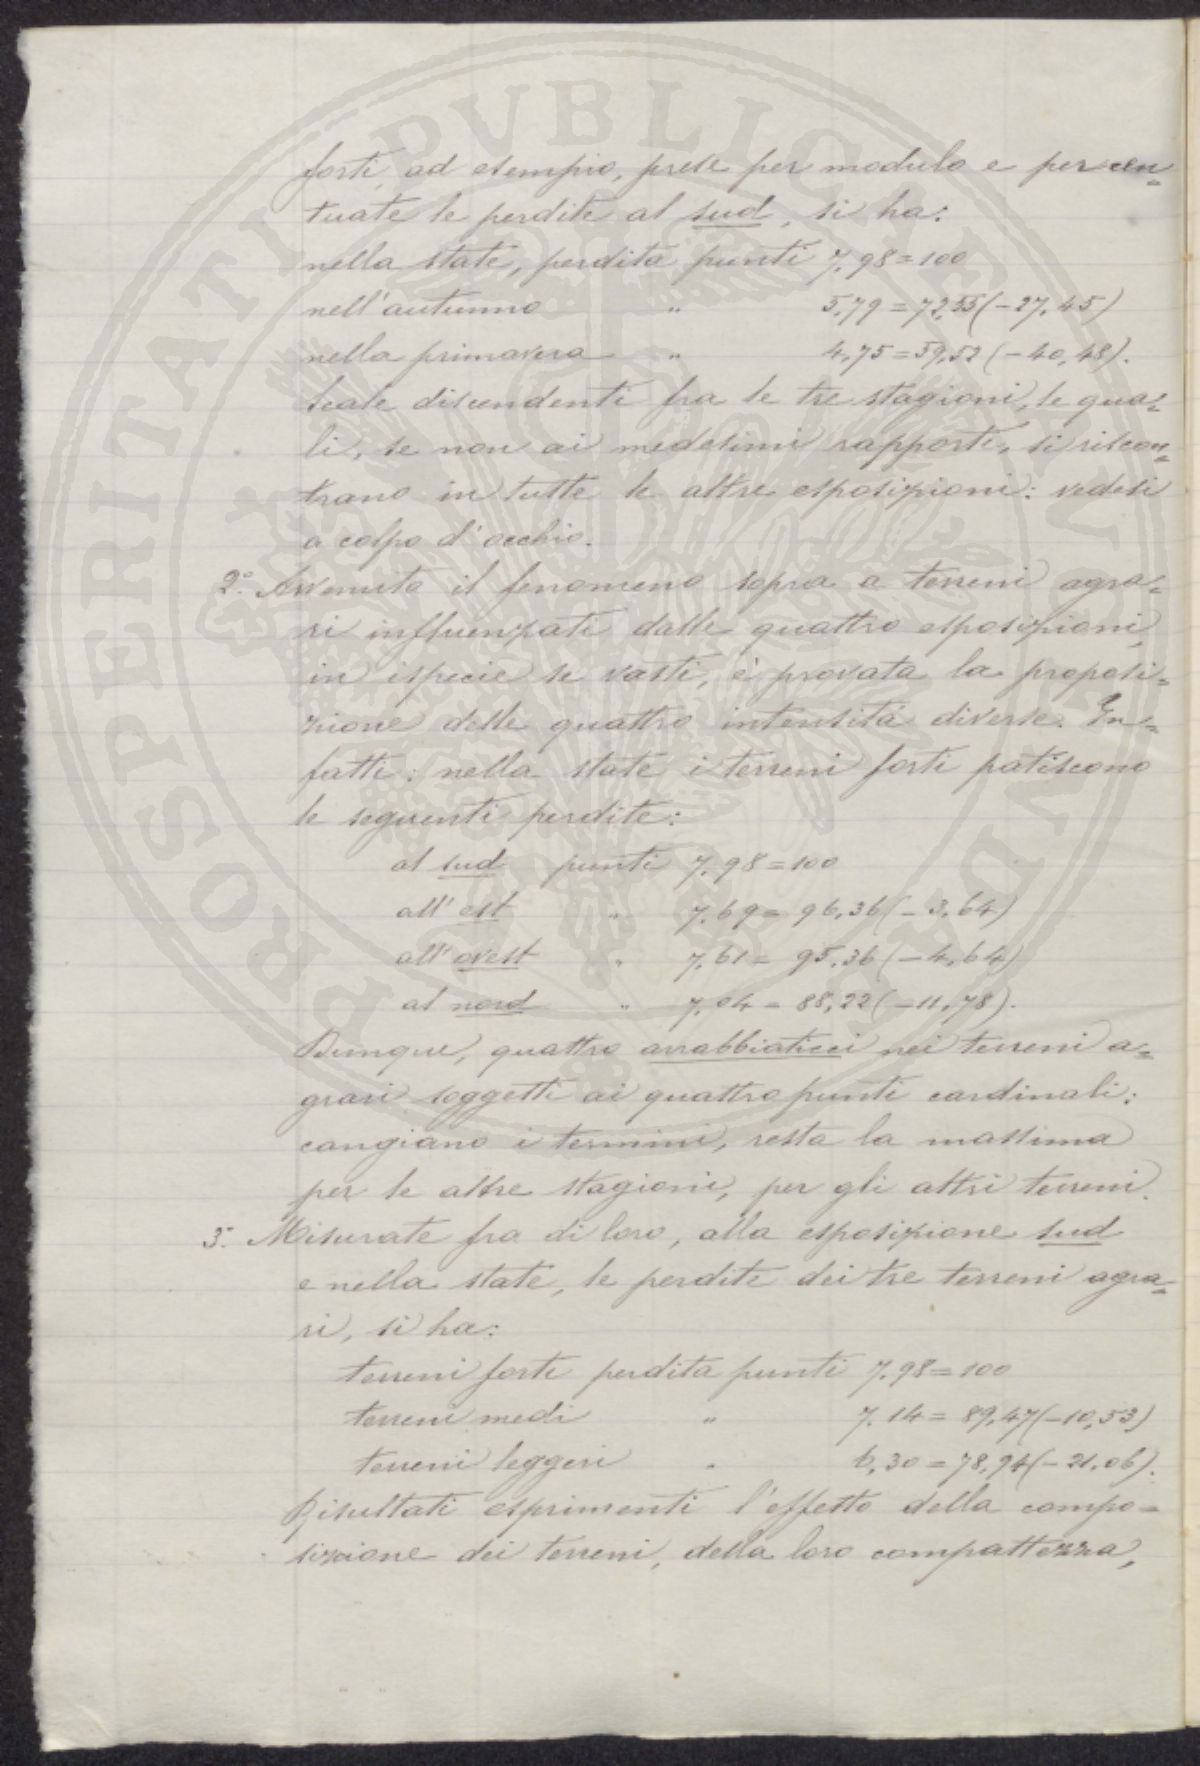 forti, ad esempio, prese per modulo e percen=
tuate le perdite al sud, si ha:
nella state, perdita punti 7,98=100
nell'autunno " 5,79=72,55(-27,45)
nella primavera " 4,75=59,52(-40,48).
Scale discendenti fra le tre stagioni, le qua=
li, se non ai medesimi rapporti, si riscon=
trano in tutte le altre esposizioni: vedesi
a colpo d'occhio.
2°. Avvenuto il fenomeno sopra a terreni agra=
ri influenzati dalle quattro esposizioni,
in ispecie se vasti, è provata la proposi=
zione delle quattro intensità diverse. In=
fatti: nella state i terreni forti patiscono
le seguenti perdite:
al sud punti 7,98=100
all'est " 7,69=96,36(-3,64)
all'ovest " 7,61=95,36(-4,64)
al nord " 7,04=88,22(-11,78).
Dunque, quattro arrabbiaticci nei terreni a=
grari soggetti ai quattro punti cardinali:
cangiano i termini, resta la massima
per le altre stagioni, per gli altri terreni.
3. Misurate fra di loro, alla esposizione sud
e nella state, le perdite dei tre terreni agra=
ri, si ha:
terreni forti perdita punti 7,98=100
terreni medi " 7,14=89,47(-10,53)
terreni leggeri " 6,30=78,94(-21,06).
Risultati esprimenti l'effetto della compo=
sizione dei terreni, della loro compattezza,
PROSPERITATI PVBLICAE AVGENDAE